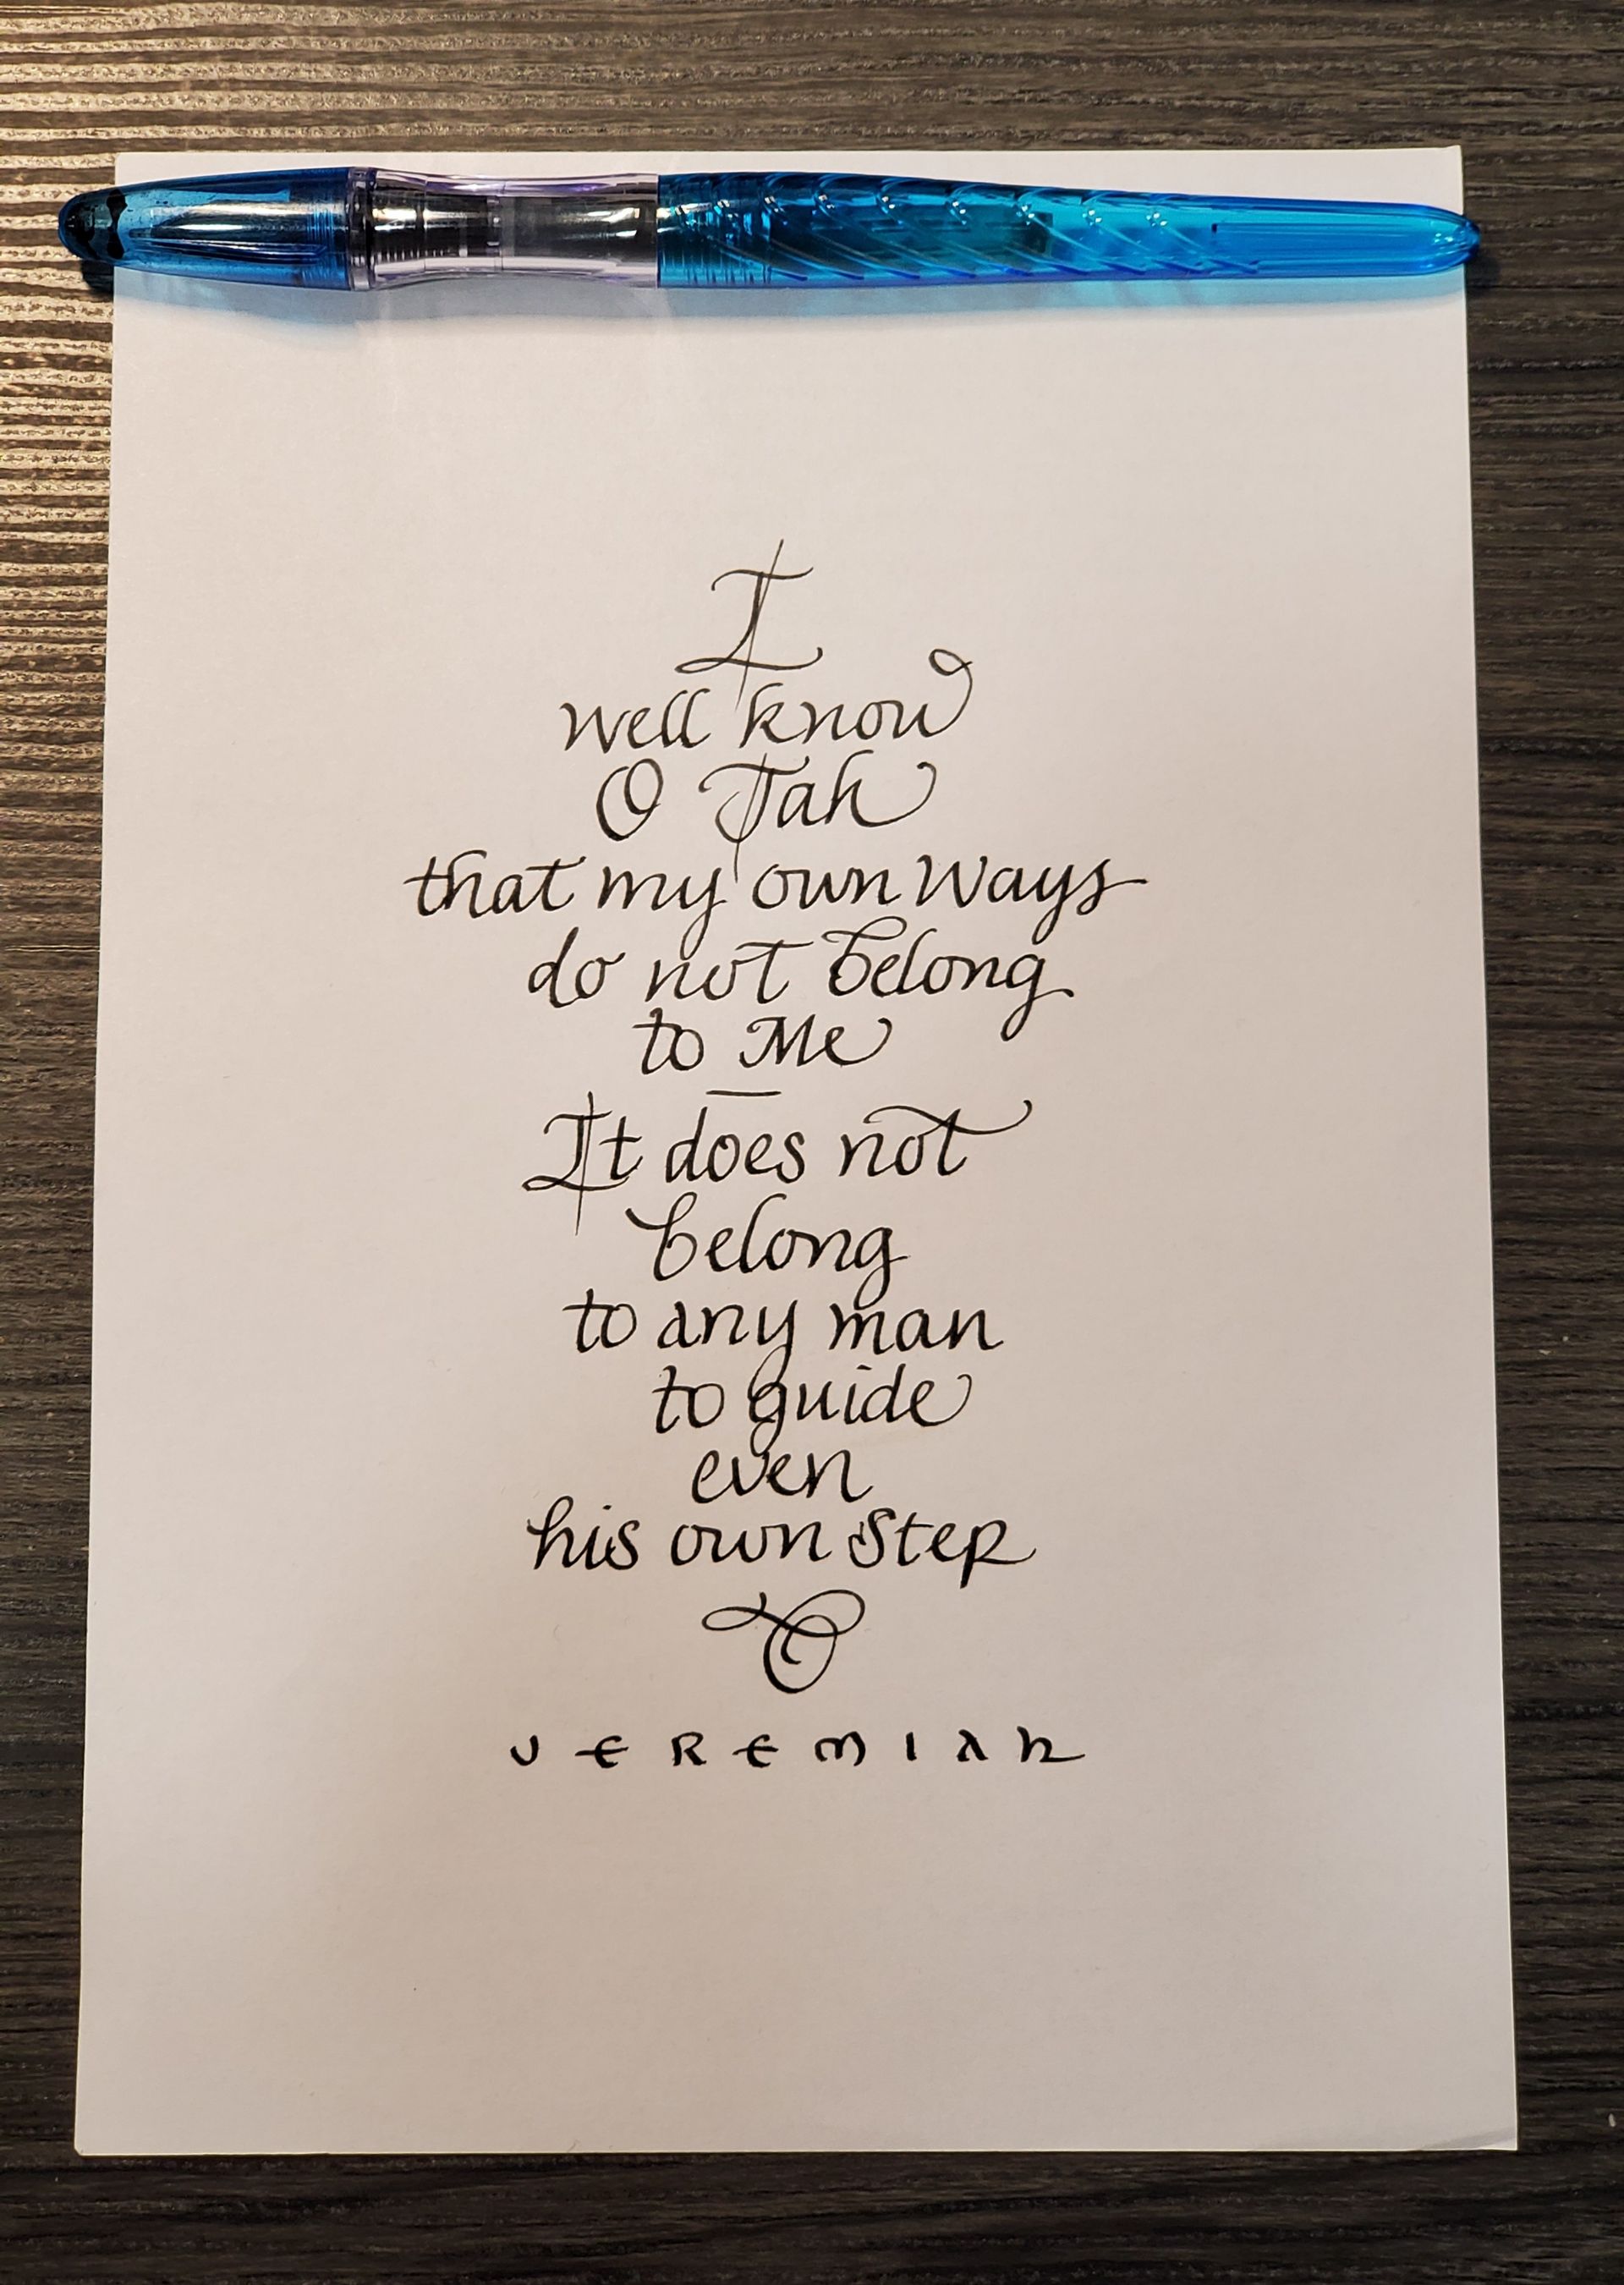 I
well know
O Jah
that my own Ways
do not belong
to Me
—
It does not
belong
to any man
to guide
even
his own Step
JEREMIAh